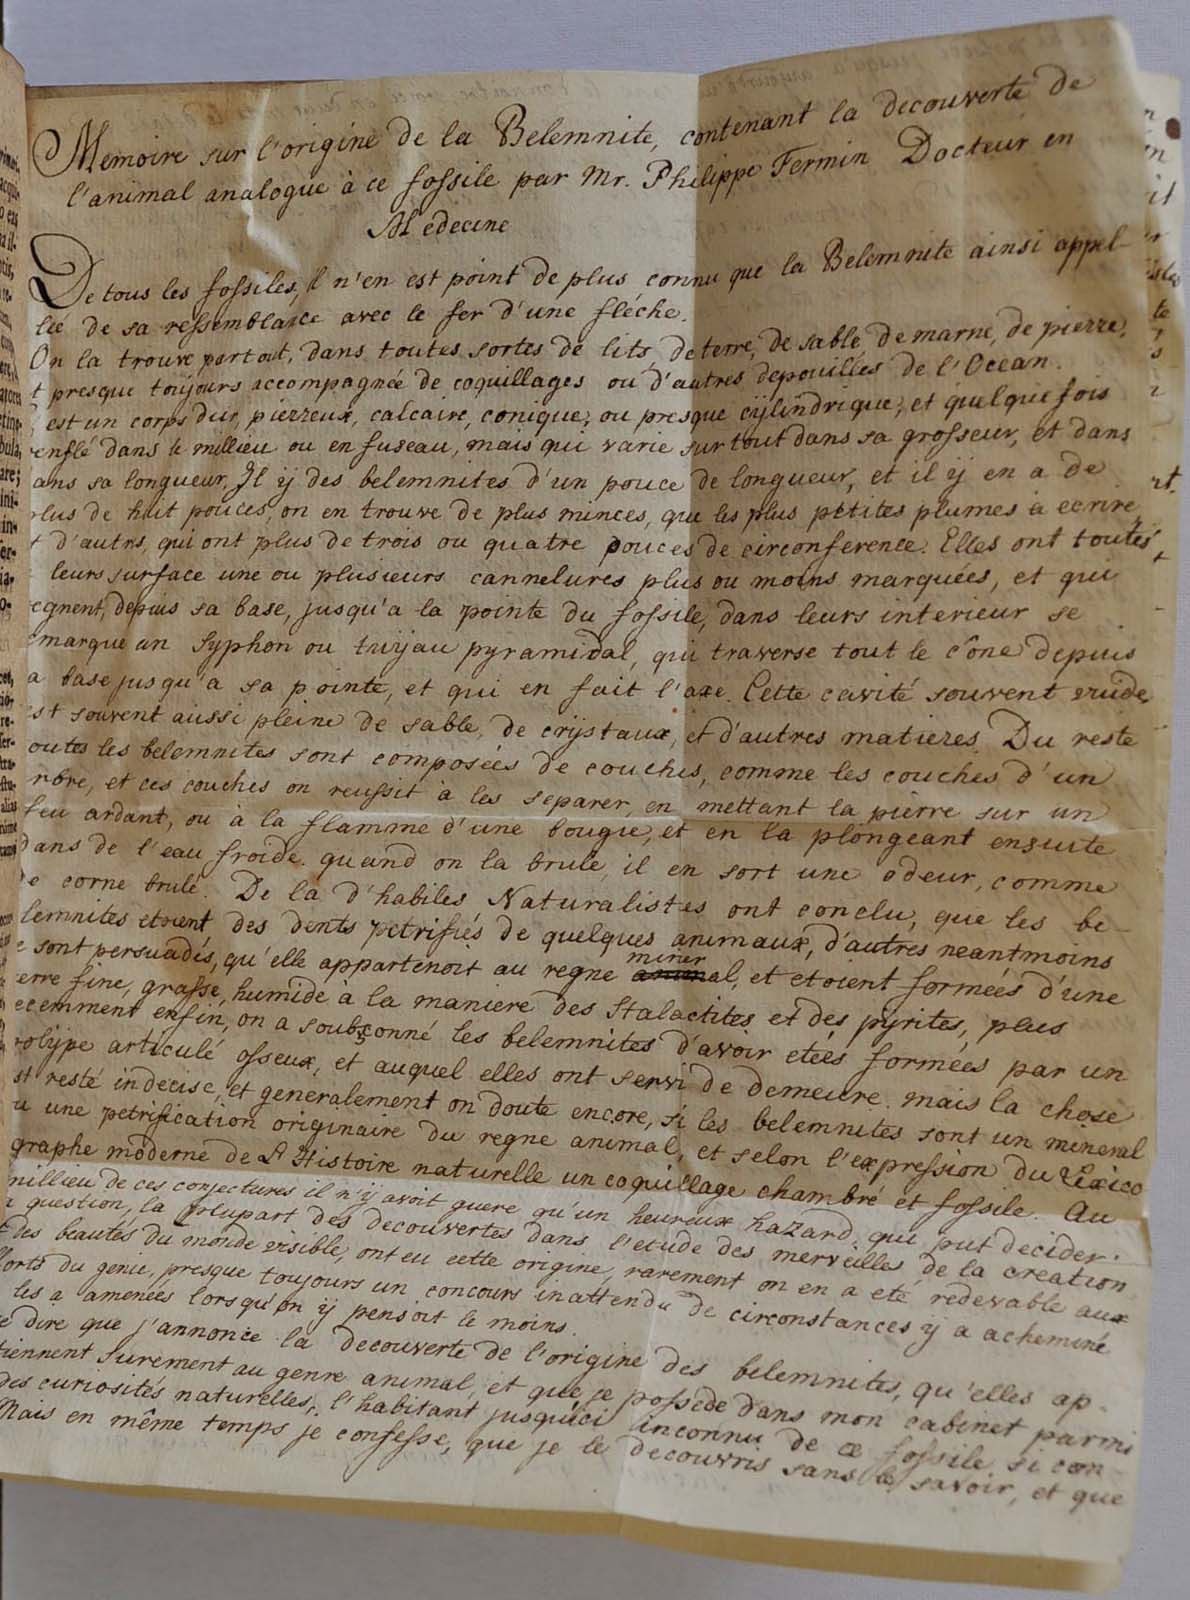 Memoire sur l'origine de la Belemnite, contenant la decouverte de
l'animal analogue à ce fossile par Mr. Philippe Fermin Docteur en
Medecine
De tous les fossiles, il n'en est point de plus connu que la Belemnite ainsi appel-
lée de sa ressemblance avec le fer d'une fléche.
On la trouve partout, dans toutes sortes de lits, de terre, de sable de marne, de pierre,
t presque toujours accompagnée de coquillages ou d'autres depouilles de l'Ocean.
est un corps dur, pierreux, calcaire, conique, ou presque cylindrique, et quelque fois
renflé dans le millieu ou en fuseau, mais qui varie sur tout dans sa grosseur, et dans
ans sa longueur, Il ij des belemnites d'un pouce de longueur, et il ij en a de
plus de huit pouces, on en trouve de plus minces, que les plus petites plumes à ecrire
t d'autrs, qui ont plus de trois ou quatre pouces de circonference. Elles ont toutes
leurs surface une ou plusieurs cannelures plus ou moins marquées, et qui
regnent, depuis sa base, jusqu'a la pointe du fossile, dans leurs interieur se
emarque un syphon ou tuijau pyramidal, qui traverse tout le cône depuis
a base jusqu'a sa pointe, et qui en fait l'axe. Cette cavité souvent vuide,
est souvent aussi pleine de sable, de crijstaux, et d'autres matieres. Du reste
outes les belemnites sont composées de couches, comme les couches d'un
rbre, et ces couches on reussit à les separer, en mettant la pierre sur un
feu ardant, ou à la flamme d'une bougie, et en la plongeant ensuite
dans de l'eau froide. quand on la brule, il en sort une odeur, comme
de corne brulé. De la d'habiles Naturalistes ont conclu, que les be-
lemnites etoient des dents petrifiés de quelques animaux, d'autres neantmoins
e sont persuadés, qu'elle appartenoit au regne mineral, et etoient formées d'une
erre fine, grasse, humide à la maniere des Stalactites et des pyrites, plus
ecemment enfin, on a soubçonné les belemnites d'avoir etées formées par un
polype articulé osseux, et auquel elles ont servi de demeure. mais la chose
st resté indecise, et generalement on doute encore, si les belemnites sont un mineral
u une petrification originaire du regne animal, et selon l'expression du Lexico
graphe moderne de L'Histoire naturelle un coquillage chambré et fossile. Au
millieu de ces conjectures il n'ij avoit guere qu'un heureux hazard, qui put decider
a question, la plupart des decouvertes dans l'etude des merveilles de la creation
t des beautés du monde visible, ont eu cette origine, rarement on en a eté redevable aux
fforts du genie, presque toujours un concours inattendu de circonstances ij a acheminé
les a amenées lorsqu'on ij pensoit le moins.
e dire que j'annonce la decouverte de l'origine des belemnites, qu'elles ap-
tiennent surement au genre animal, et que je possede dans mon cabinet parmi
des curiosités naturelles, l'habitant jusqu'ici inconnu de ce fossile si con-
Mais en même temps je confesse, que je le decouvris sans le savoir, et que